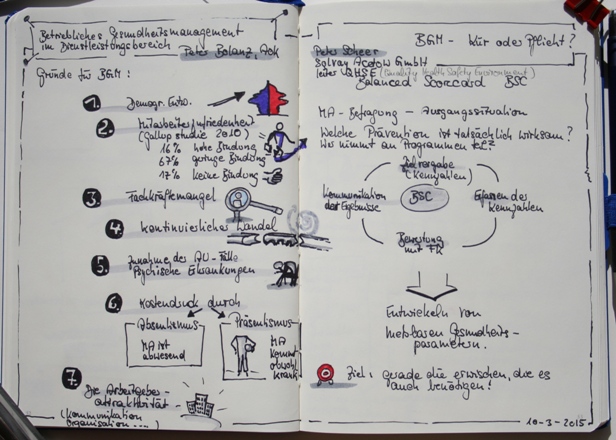 Betriebliches Gesundheitsmanagement
im Dienstleistungsbereich
Peter Bolanz, AOK
Gründe für BGM:
1. Demogr. Entw.
2. Mitarbeiterzufriedenheit
(Gallup Studie 2010)
16% hohe Bindung
67% geringe Bindung
17% keine Bindung
3. Fachkräftemangel
4. kontinuierlicher Wandel
5. Zunahme der AU-Fälle
Psychische Erkrankungen
6. Kostendruck durch
Absentismus
MA ist
abwesend
Präsentismus
MA
kommt
obwohl
krank
7. Die Arbeitgeber-
attraktivität
(Kommunikation
Organisation....)
BGM - Kür oder Pflicht?
Peter Scheer
Solvay Acetow GmbH
leiter QHSE (Quality Health Safety Environment)
Balanced Scorecard BSC
MA-Befragung - Ausgangssituation
Welche Prävention ist tatsächlich wirksam?
Wer nimmt an Programmen teil?
Zielvorgabe
(Kennzahlen)
Kommunikation
der Ergebnisse
BSC
Erfassen der
Kennzahlen
Bewertung
mit FK
Entwickeln von
messbaren Gesundheits-
parametern.
Ziel: gerade die erwischen, die es
auch benötigen!
10-3-2015